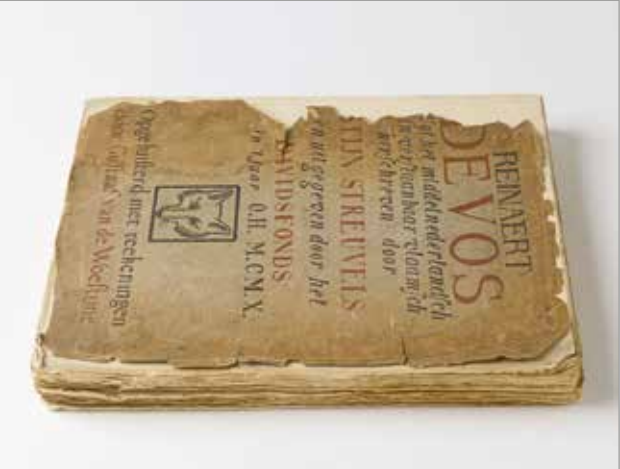 REINAERT
DE VOS
uit het middelnederlandsch
in voortaanbaar vlaamsch
herschreven door
STIJN STREUVELS
en uitgegeven door het
DAVIDSFONDS
in 't jaar O.H. M.C.M.X.
Opgeluisterd met teekeningen
door Gustaaf van de Woestijne